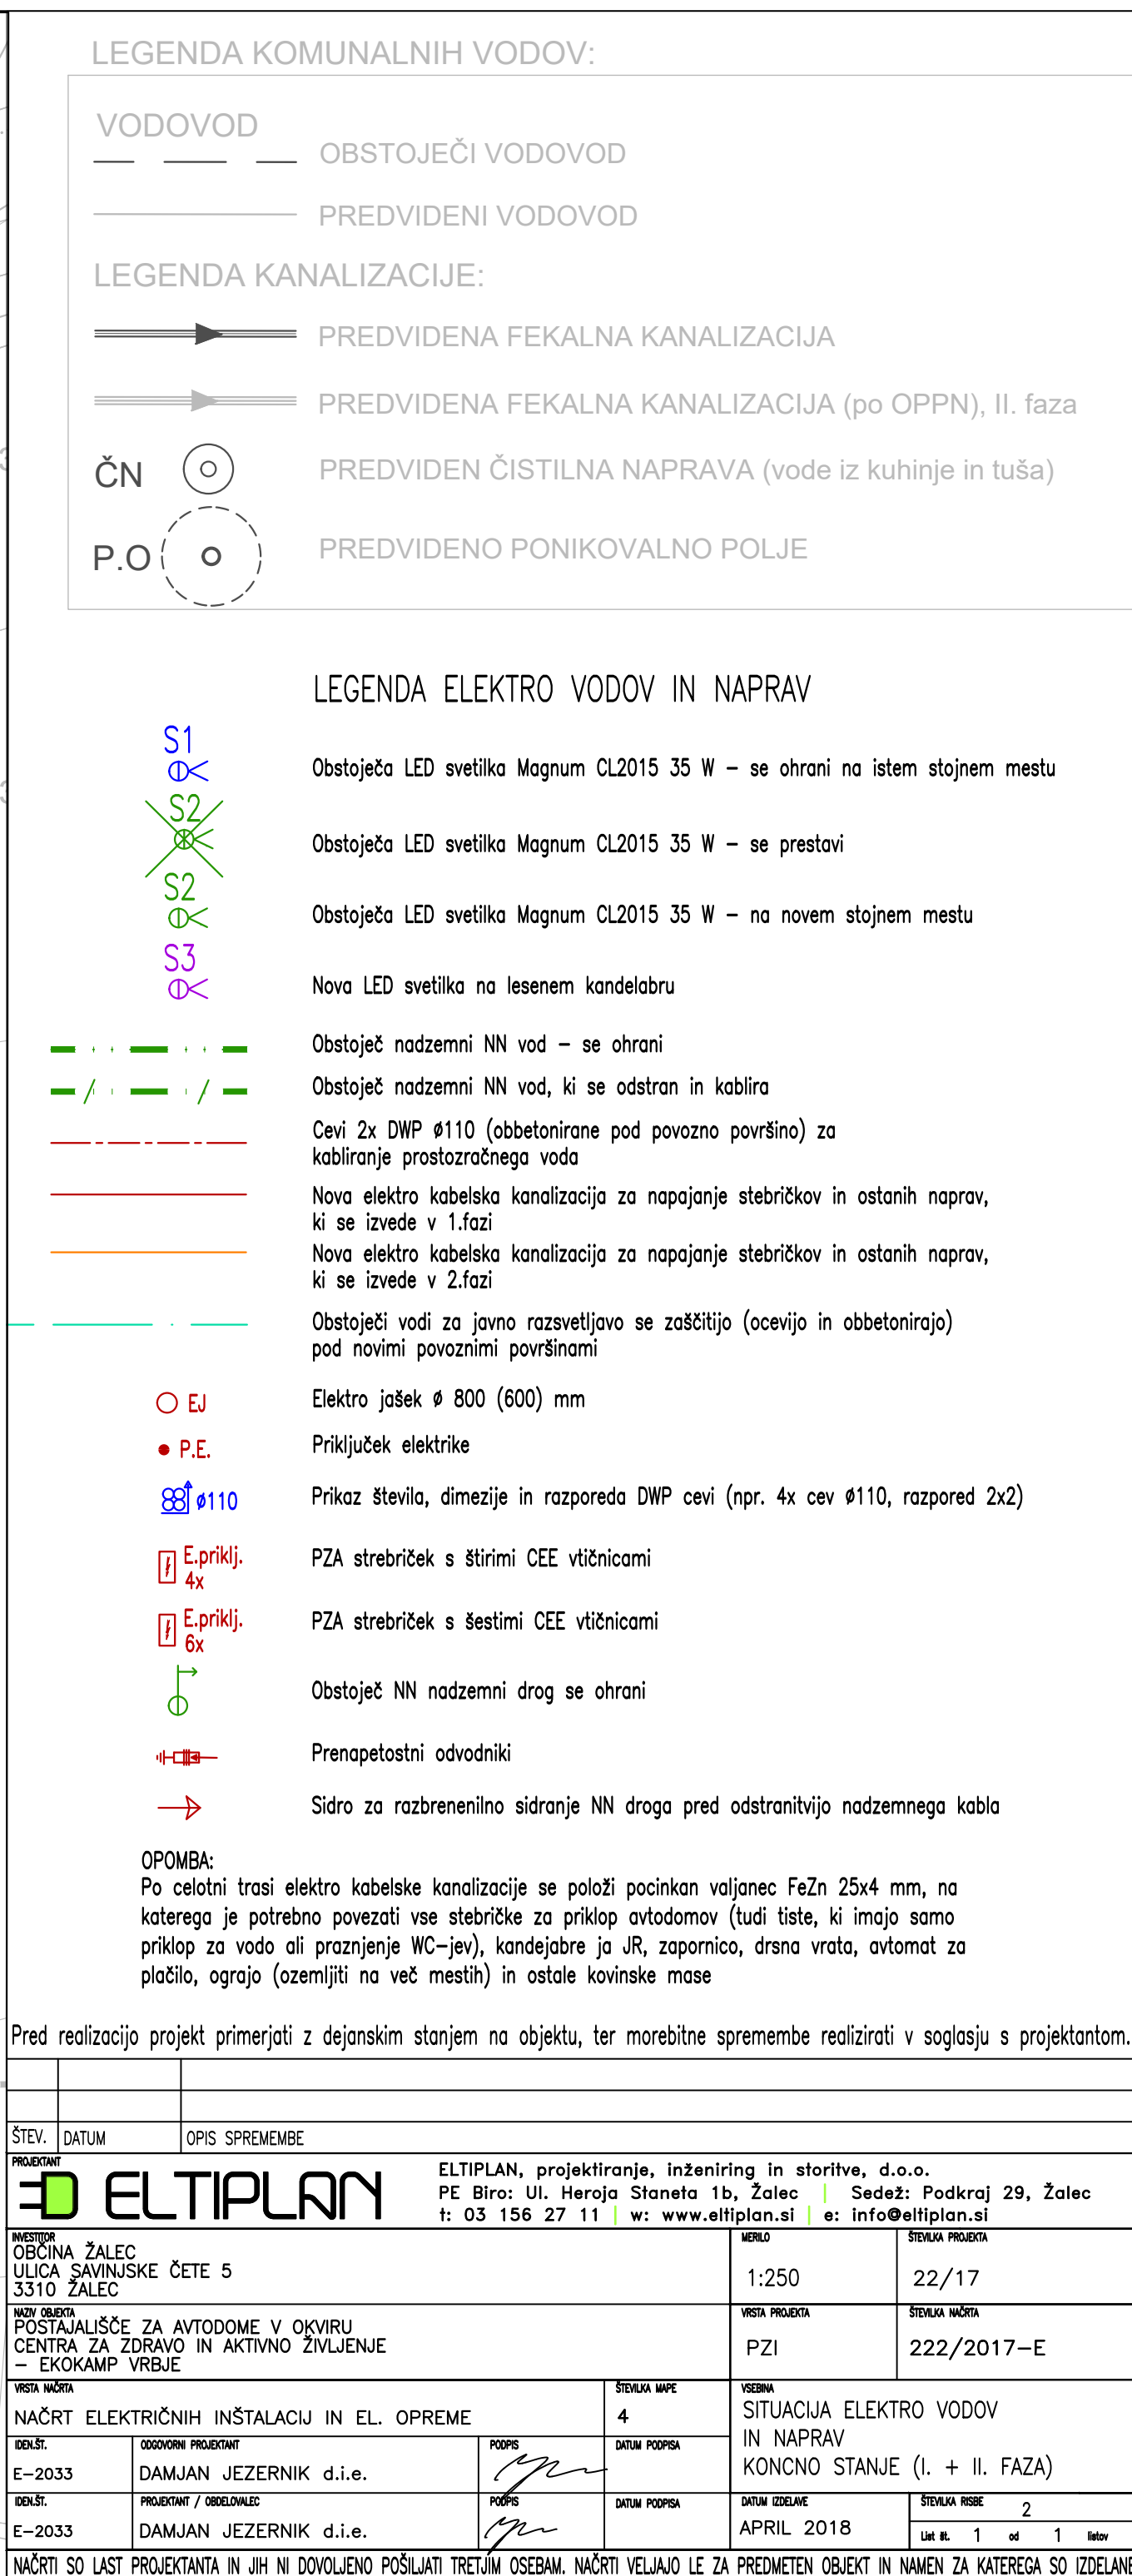 LEGENDA KOMUNALNIH VODOV:
VODOVOD
OBSTOJEČI VODOVOD
PREDVIDENI VODOVOD
LEGENDA KANALIZACIJE:
PREDVIDENA FEKALNA KANALIZACIJA
PREDVIDENA FEKALNA KANALIZACIJA (po OPPN), II. faza
ČN PREDVIDEN ČISTILNA NAPRAVA (vode iz kuhinje in tuša)
P.O PREDVIDENO PONIKOVALNO POLJE
LEGENDA ELEKTRO VODOV IN NAPRAV
S1
Obstoječa LED svetilka Magnum CL2015 35 W – se ohrani na istem stojnem mestu
S2
Obstoječa LED svetilka Magnum CL2015 35 W – se prestavi
S2
Obstoječa LED svetilka Magnum CL2015 35 W – na novem stojnem mestu
S3
Nova LED svetilka na lesenem kandelabru
Obstoječ nadzemni NN vod – se ohrani
Obstoječ nadzemni NN vod, ki se odstran in kablira
Cevi 2x DWP ø110 (obbetonirane pod povozno površino) za
kabliranje prostozračnega voda
Nova elektro kabelska kanalizacija za napajanje stebričkov in ostanih naprav,
ki se izvede v 1.fazi
Nova elektro kabelska kanalizacija za napajanje stebričkov in ostanih naprav,
ki se izvede v 2.fazi
Obstoječi vodi za javno razsvetljavo se zaščitijo (ocevijo in obbetonirajo)
pod novimi povoznimi površinami
EJ Elektro jašek ø 800 (600) mm
P.E. Priključek elektrike
ø110 Prikaz števila, dimezije in razporeda DWP cevi (npr. 4x cev ø110, razpored 2x2)
E.priklj. PZA strebriček s štirimi CEE vtičnicami
4x
E.priklj. PZA strebriček s šestimi CEE vtičnicami
6x
Obstoječ NN nadzemni drog se ohrani
Prenapetostni odvodniki
Sidro za razbrenenilno sidranje NN droga pred odstranitvijo nadzemnega kabla
OPOMBA:
Po celotni trasi elektro kabelske kanalizacije se položi pocinkan valjanec FeZn 25x4 mm, na
katerega je potrebno povezati vse stebričke za priklop avtodomov (tudi tiste, ki imajo samo
priklop za vodo ali praznjenje WC–jev), kandejabre ja JR, zapornico, drsna vrata, avtomat za
plačilo, ograjo (ozemljiti na več mestih) in ostale kovinske mase
Pred realizacijo projekt primerjati z dejanskim stanjem na objektu, ter morebitne spremembe realizirati v soglasju s projektantom.
ŠTEV. DATUM OPIS SPREMEMBE
PROJEKTANT
ELTIPLAN
ELTIPLAN, projektiranje, inženiring in storitve, d.o.o.
PE Biro: Ul. Heroja Staneta 1b, Žalec | Sedež: Podkraj 29, Žalec
t: 03 156 27 11 | w: www.eltiplan.si | e: info@eltiplan.si
INVESTITOR
OBČINA ŽALEC
ULICA SAVINJSKE ČETE 5
3310 ŽALEC
MERILO
1:250
ŠTEVILKA PROJEKTA
22/17
NAZIV OBJEKTA
POSTAJALIŠČE ZA AVTODOME V OKVIRU
CENTRA ZA ZDRAVO IN AKTIVNO ŽIVLJENJE
– EKOKAMP VRBJE
VRSTA PROJEKTA
PZI
ŠTEVILKA NAČRTA
222/2017–E
VRSTA NAČRTA
NAČRT ELEKTRIČNIH INŠTALACIJ IN EL. OPREME
ŠTEVILKA MAPE
4
VSEBINA
SITUACIJA ELEKTRO VODOV
IN NAPRAV
KONCNO STANJE (I. + II. FAZA)
IDEN.ŠT. ODGOVORNI PROJEKTANT PODPIS DATUM PODPISA
E–2033 DAMJAN JEZERNIK d.i.e.
IDEN.ŠT. PROJEKTANT / OBDELOVALEC PODPIS DATUM PODPISA
E–2033 DAMJAN JEZERNIK d.i.e.
DATUM IZDELAVE
APRIL 2018
ŠTEVILKA RISBE 2
List št. 1 od 1 listov
NAČRTI SO LAST PROJEKTANTA IN JIH NI DOVOLJENO POŠILJATI TRETJIM OSEBAM. NAČRTI VELJAJO LE ZA PREDMETEN OBJEKT IN NAMEN ZA KATEREGA SO IZDELANI